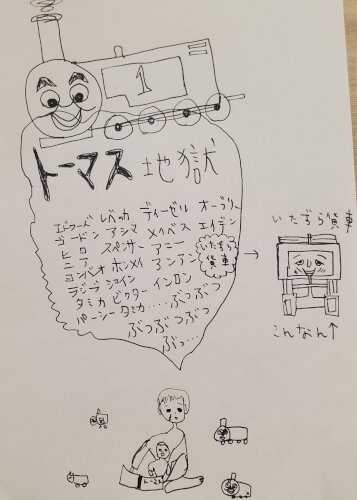 1
トーマス 地獄
エドワード レベッカ ディーゼル オーブリー
ゴードン アシマ メイベス エイデン
ヒロ スペンサー アニー
いたずら貨車
ニア ホンメイ アンアン
コンベオ
ラジーブ ジイン インロン
タミカ ビクター ・・・・ぶつぶつ
パーシー タミカ
ぶつぶつぶつ
ぶっ…
いたずら貨車
こんなん↑